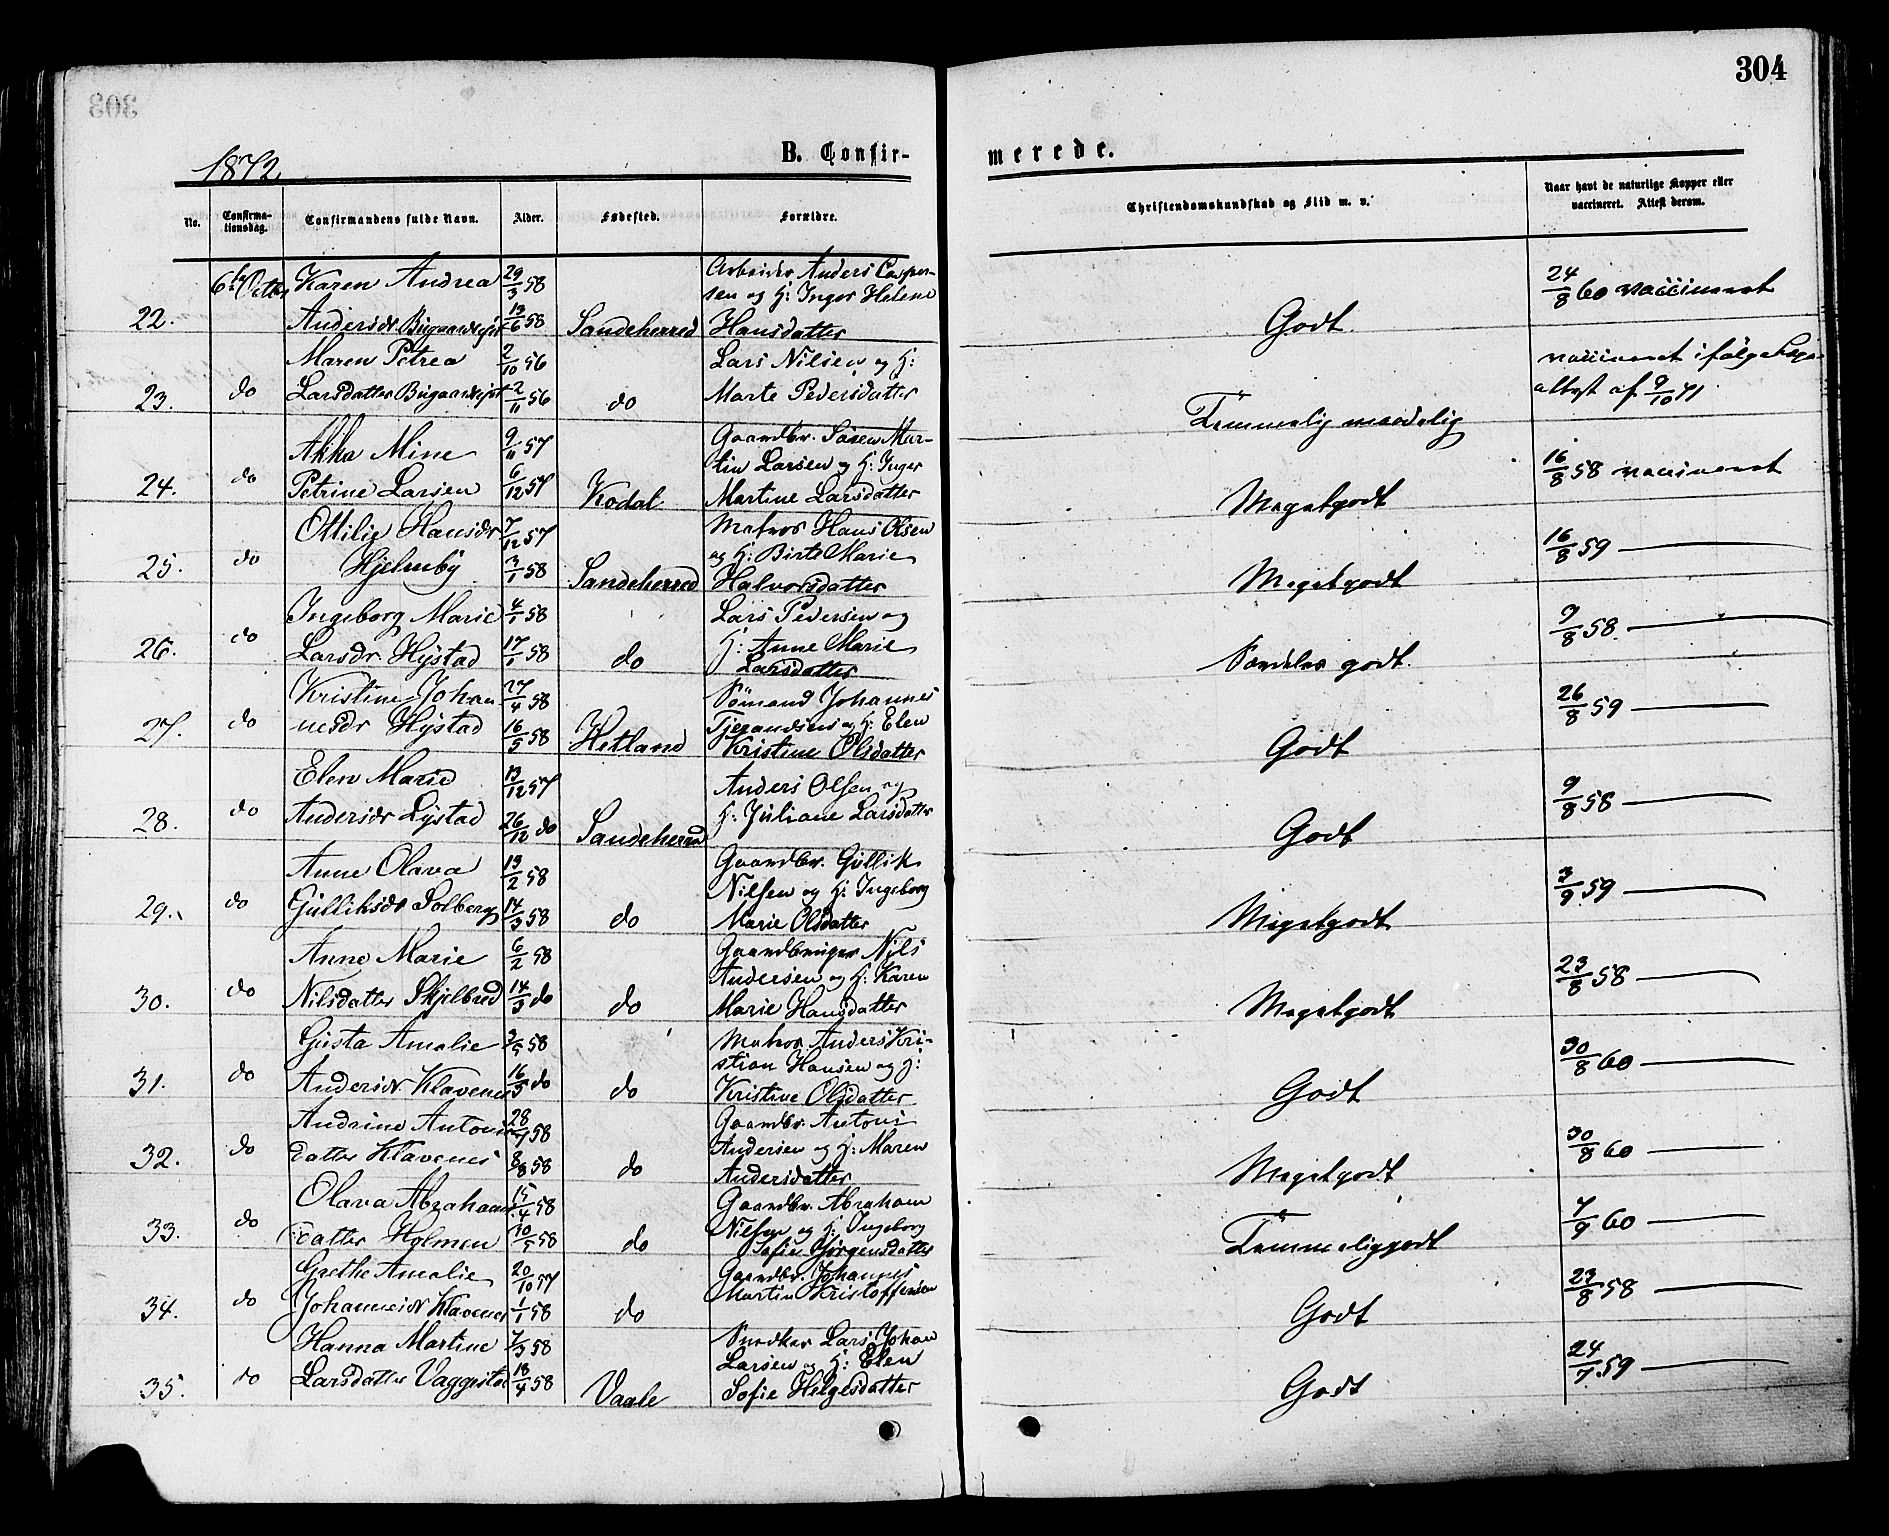 304
1872
B. Confir-
merede.
No.
Confirma-
tionsdag.
Confirmandens fulde Navn.
Alder.
Fødested.
Forældre.
Christendomskundskab og Flid m. v.
Naar havt de naturlige Kopper eller
vaccineret. Attest derom.
22. 6te Octbr Karen Andrea 29/3 58 Arbeider Anders Casper-
sen og H: Inger Helene
Andersdr Bugaardejet 13/6 58 Sandeherred Hansdatter Godt. 24/8 60 vaccineret
23. do Maren Petrea 2/10 56 Lars Nilsen og H:
Larsdatter Bugaardejet 2/11 56 do Marte Pedersdatter Temmelig maadelig vaccineret ifølge
attest af 9/10 71
24. do Akka Mine 9/11 57 Gaardbr. Søren Mar-
tin Larsen og H: Inger
Petrine Larsen 6/12 57 Kodal Martine Larsdatter Megetgodt 16/8 58 vaccineret
25. do Ottilie Hansdr 7/12 57 Matros Hans Olsen
og H: Birte Marie
Hjelmby 3/1 58 Sandeherred Halvorsdatter Megetgodt 16/8 59
26. do Ingeborg Marie 4/1 58 Lars Pedersen og
Larsdr. Hystad 17/1 58 do H: Anne Marie
Larsdatter Særdeles godt. 9/8 58
27. do Kristine Johan 27/4 58 Sömand Johannes
nesdr Hystad 16/5 58 Hetland Tjerandsen og H: Elen
Kristine Olsdatter Godt 26/8 59
28. do Elen Marie 13/12 57 Anders Olsen og
Andersdr Lystad 26/12 do Sandeherred H: Juliane Larsdatter Godt 9/8 58
29. do Anne Olava 13/2 58 Gaardbr. Gullik
Nilsen og H: Ingeborg
Gulliksdr Solberg 14/3 58 do Marie Olsdatter Megetgodt 3/9 59
30. do Anne Marie 6/2 58 Gaardbruger Nils
Andersen og H: Karen
Nilsdatter Skjelbred 14/3 do do Marie Hansdatter Megetgodt 23/8 58
31. do Gusta Amalie 3/5 58 Matros Anders Kri-
stian Hansen og H:
Andersdr Klavenes 16/5 do do Kristine Olsdatter Godt 30/8 60
32. do Andrine Antonis 28/7 58 Gaardbr. Antoni
Andersen og H: Maren
datter Klavenes 8/8 58 do Andersdatter Megetgodt 30/8 60
33. do Olava Abrahams 15/4 58 Gaardbr. Abraham
Nilsen og H: Ingeborg
datter Holmen 10/5 58 do Sofie Jørgensdatter Temmeliggodt 7/9 60
34. do Grethe Amalie 20/10 57 Gaardbr. Johannes
Martin Kristoffersen
Johannesdr Klavenes 1/1 58 do Godt 23/8 58
35. do Hanna Martine 7/3 58 Snedker Lars Johan
Larsen og H: Elen
Larsdatter Vaggestad 18/4 58 Vaale Sofie Helgesdatter Godt 24/7 59